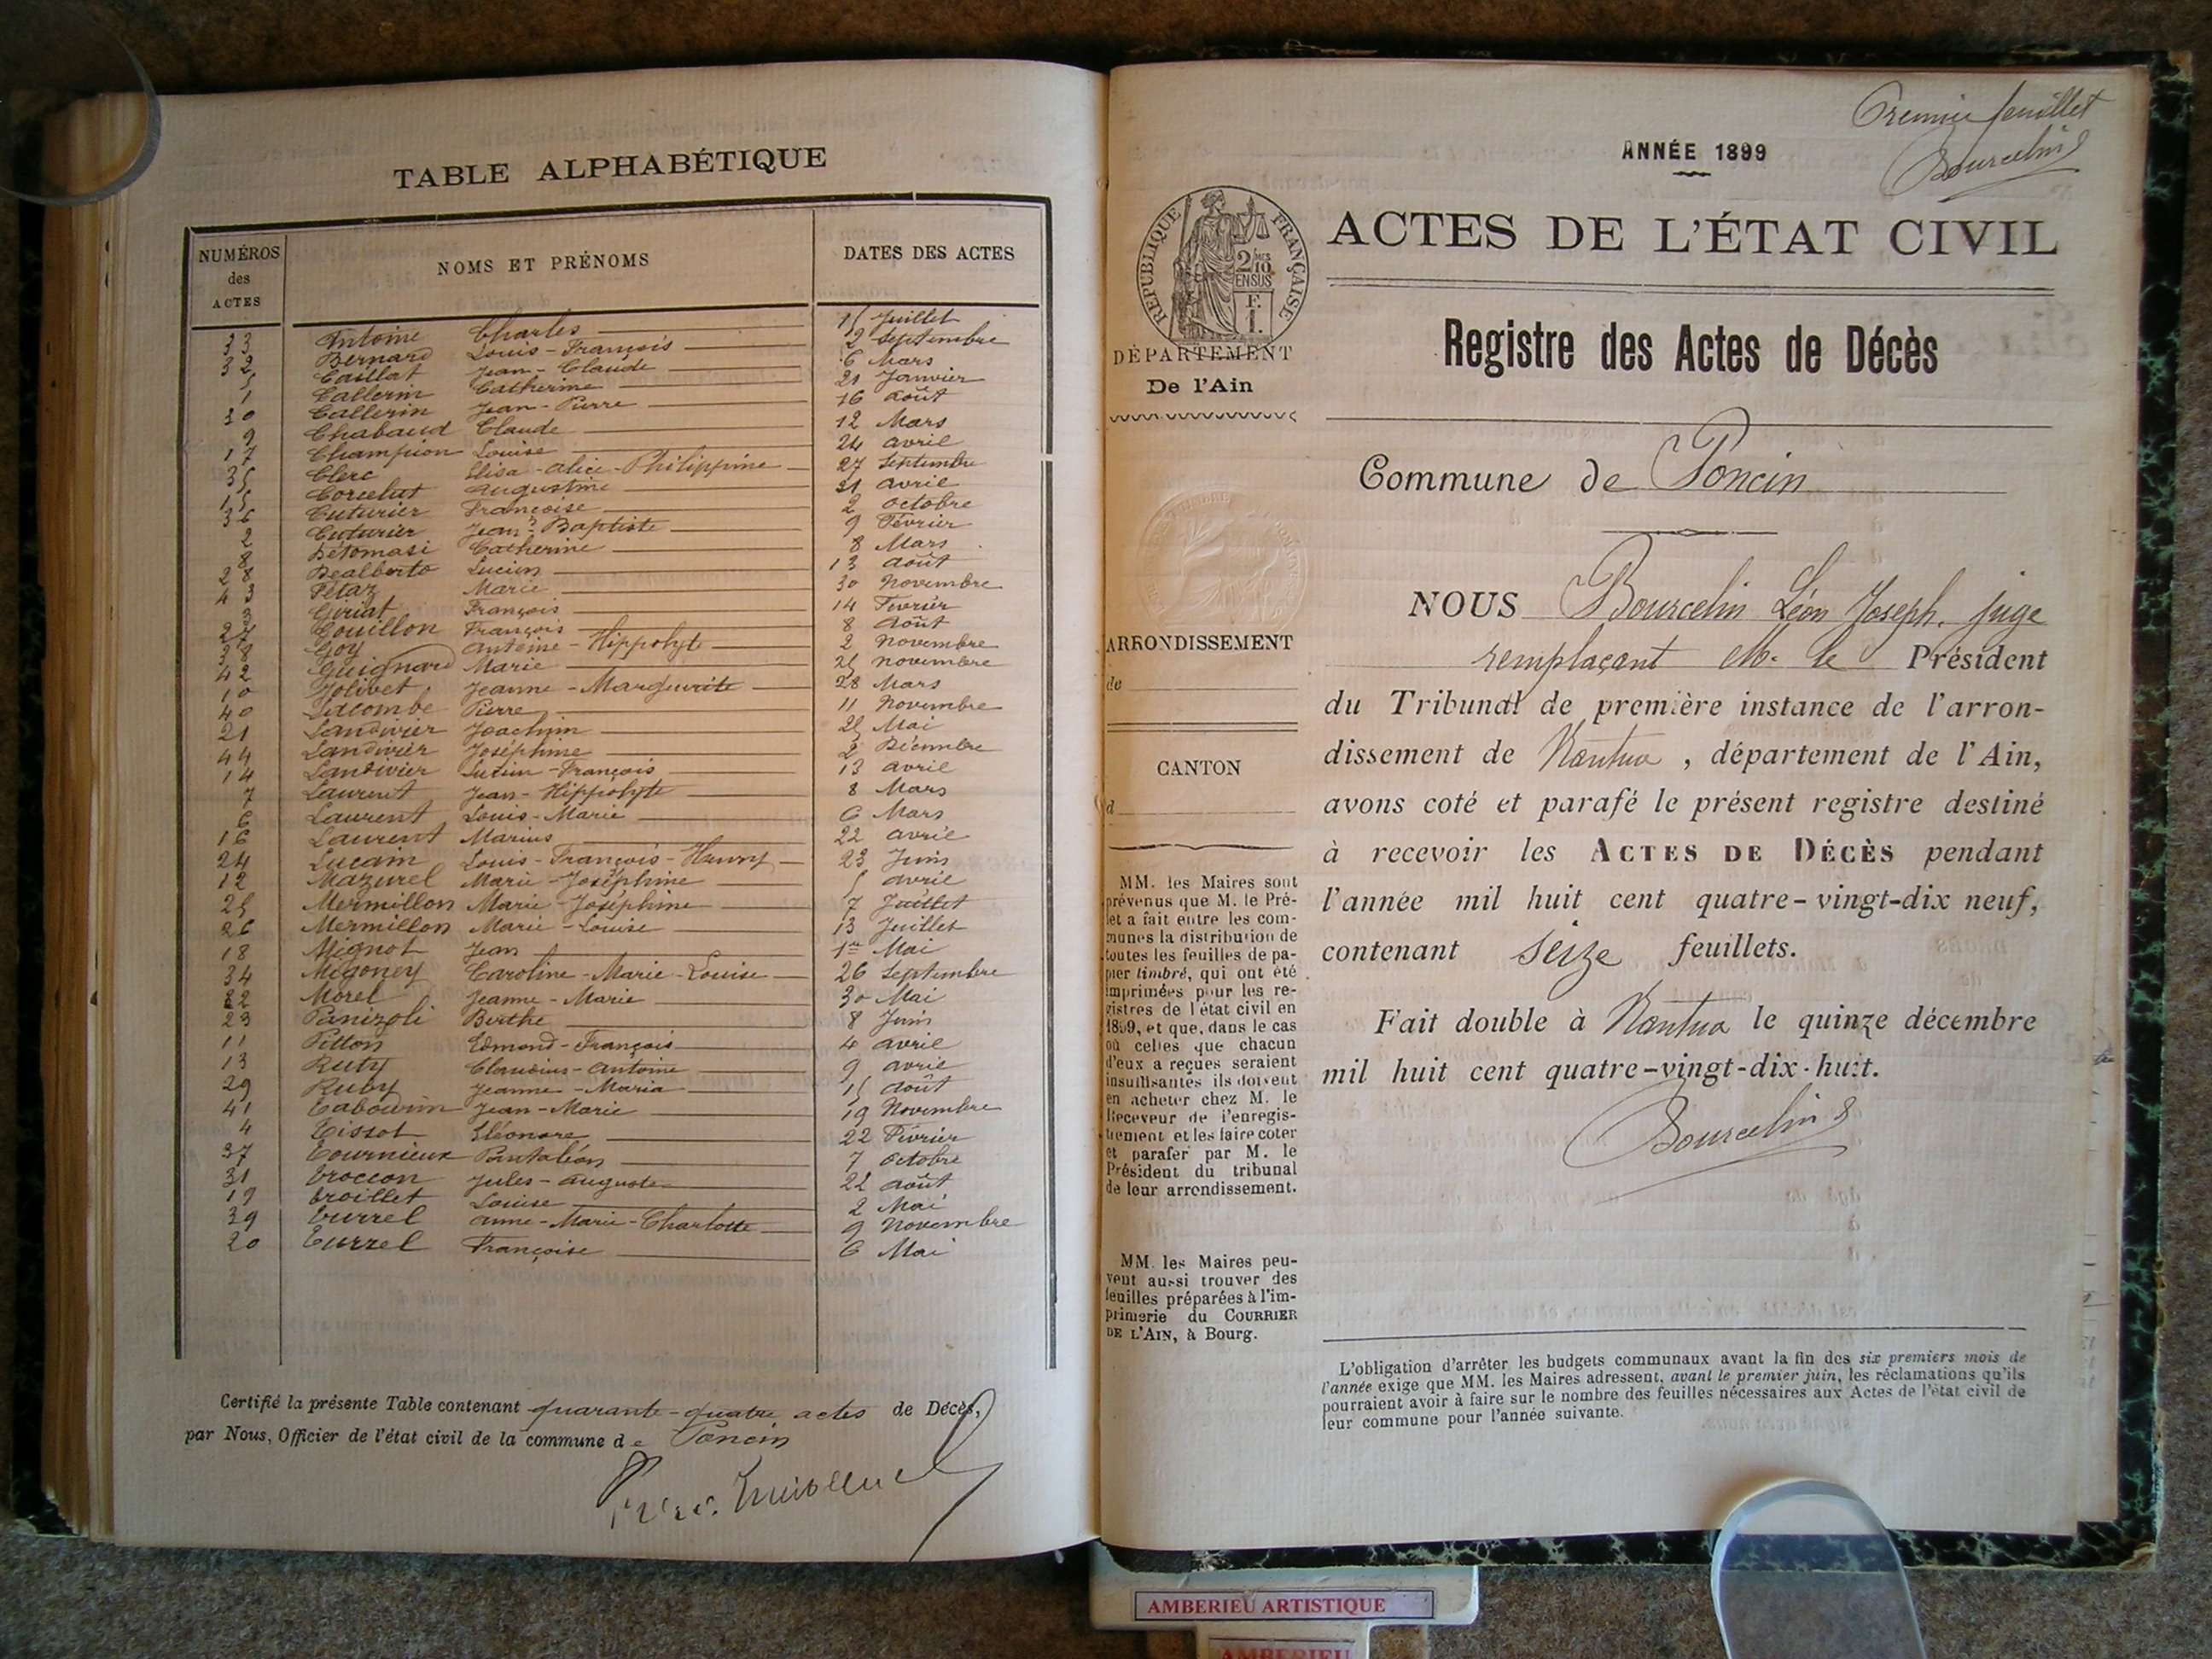 TABLE ALPHABÉTIQUE
NUMÉROS des ACTES NOMS ET PRÉNOMS DATES DES ACTES
Antoine Charles 15 Juillet
33 Bernard Louis-François 2 Septembre
32 Caillat Jean-Claude 6 Mars
5 Callerin Catherine 21 Janvier
1 Callerin Jean-Pierre 16 août
30 Chabaud Claude 12 Mars
9 Champion Louise 24 avril
17 Clerc Elisa-alice-Philippine 27 Septembre
35 Corcelut Augustine 21 avril
15 Cuturier Françoise 2 octobre
36 Cuturier Jean-Baptiste 9 Février
2 Détomasi Catherine 8 Mars
8 Dealberto Lucien 13 août
28 Fétaz Marie 30 Novembre
43 Guriat François 14 Février
3 Gouillon François 8 août
27 Goy antoine-Hippolyte 2 novembre
38 Guignard Marie 25 novembre
42 Jolivet Jeanne-Marguerite 28 Mars
10 Lacombe Pierre 11 Novembre
40 Landivier Joachim 25 Mai
21 Landivier Joséphine 2 Décembre
44 Landivier François 13 avril
14 Laurent Jean-Hippolyte 8 Mars
7 Laurent Louis-Marie 6 Mars
6 Laurent Marius 22 avril
16 Lucain Louis-François-Henry 23 Juin
24 Mazurel Marie-Joséphine 5 avril
12 Mermillon Marie-Joséphine 7 Juillet
25 Mermillon Marie-Louise 13 Juillet
26 Mignot Jean 1er Mai
18 Migoney Caroline-Marie-Louise 26 Septembre
34 Morel Jeanne-Marie 30 Mai
22 Panizoli Berthe 8 Juin
23 Pitton Edmond-François 4 avril
11 Ruty Claudius-antoine 9 avril
13 Ruby Jeanne-Maria 15 août
29 Tabourin Jean-Marie 19 Novembre
41 Tissot Eléonore 22 Février
4 Tournieux Pantaléon 7 octobre
37 Troccon Jules-auguste 22 août
31 Troillet Louise 2 Mai
19 Turrel anne-Marie-Charlotte 9 Novembre
39 Turrel Françoise 6 Mai
20
Certifié la présente Table contenant quarante-quatre actes de Décès,
par Nous, Officier de l'état civil de la commune de Poncin
Premier feuillet
Bourcelin
ANNÉE 1899
RÉPUBLIQUE FRANÇAISE
2/10 EN SUS
ACTES DE L'ÉTAT CIVIL
DÉPARTEMENT
De l'Ain
Registre des Actes de Décès
Commune de Poncin
NOUS Bourcelin Léon Joseph, juge
remplaçant M. le Président
du Tribunal de première instance de l'arron-
dissement de Nantua, département de l'Ain,
avons coté et parafé le présent registre destiné
à recevoir les ACTES DE DÉCÈS pendant
l'année mil huit cent quatre-vingt-dix neuf,
contenant seize feuillets.
Fait double à Nantua le quinze décembre
mil huit cent quatre-vingt-dix-huit.
Bourcelin
ARRONDISSEMENT
de
CANTON
d
MM. les Maires sont
prévenus que M. le Pré-
fet a fait entre les com-
munes la distribution de
toutes les feuilles de pa-
pier timbré, qui ont été
imprimées pour les re-
gistres de l'état civil en
1899, et que, dans le cas
où celles que chacun
d'eux a reçues seraient
insuffisantes ils doivent
en acheter chez M. le
Receveur de l'enregis-
trement et les faire coter
et parafer par M. le
Président du tribunal
de leur arrondissement.
MM. les Maires peu-
vent aussi trouver des
feuilles préparées à l'im-
primerie du COURRIER
DE L'AIN, à Bourg.
L'obligation d'arrêter les budgets communaux avant la fin des six premiers mois de
l'année exige que MM. les Maires adressent, avant le premier juin, les réclamations qu'ils
pourraient avoir à faire sur le nombre des feuilles nécessaires aux Actes de l'état civil de
leur commune pour l'année suivante.
AMBERIEU ARTISTIQUE
AMBERIEU